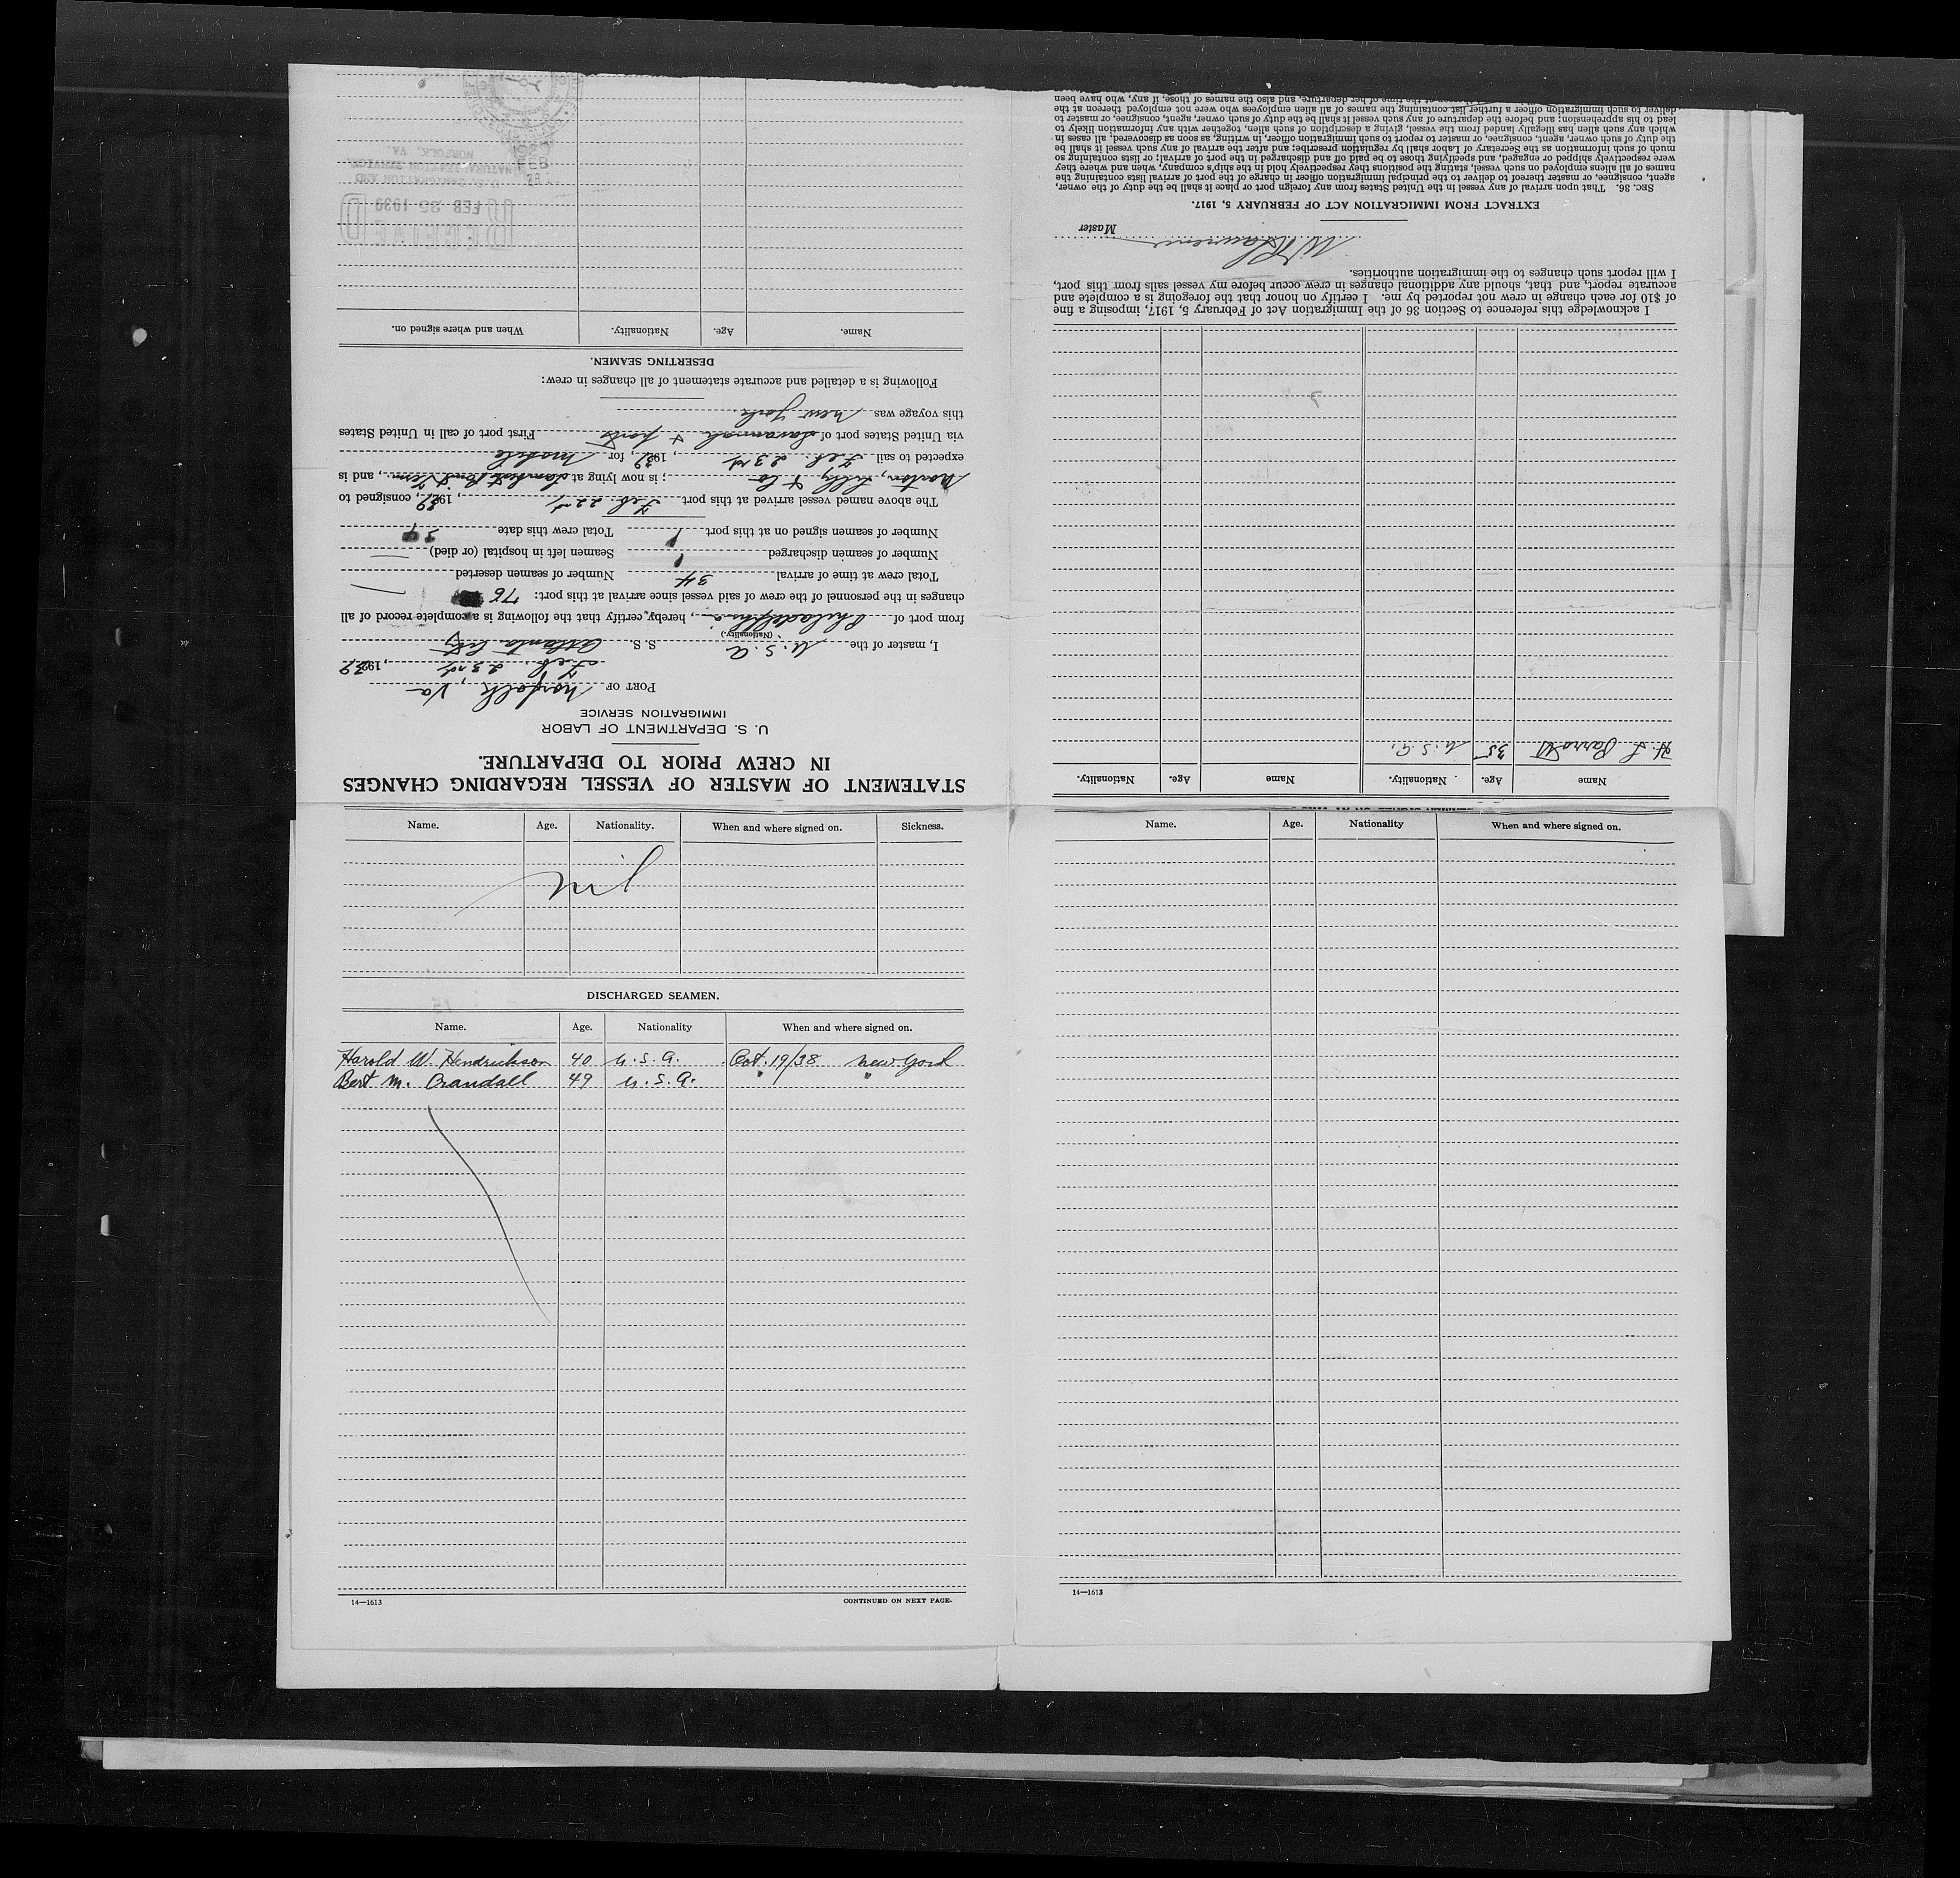 STATEMENT OF MASTER OF VESSEL REGARDING CHANGES
IN CREW PRIOR TO DEPARTURE.
U. S. DEPARTMENT OF LABOR
IMMIGRATION SERVICE
PORT OF Norfolk, Va
Feb. 23rd, 1939
I, master of the U.S.A S. S. Atlanta City
(Nationality.)
from port of Philadelphia, hereby certify that the following is a complete record of all
changes in the personnel of the crew of said vessel since arrival at this port: 76
Total crew at time of arrival 34 Number of seamen deserted —
Number of seamen discharged 1 Seamen left in hospital (or died) —
Number of seamen signed on at this port 1 Total crew this date 34
The above named vessel arrived at this port Feb. 22nd, 1939, consigned to
Norton, Lilly & Co; is now lying at Lamberts Point Term., and is
expected to sail Feb. 23rd, 1939, for Mobile
via United States port of Savannah & ports First port of call in United States
this voyage was New York.
Following is a detailed and accurate statement of all changes in crew:
DESERTING SEAMEN.
Name. Age. Nationality. When and where signed on.
RECEIVED
FEB 25 1939
U.S. IMMIGRATION AND
NATURALIZATION SERVICE
NORFOLK, VA.
FEB
Name. Age. Nationality. When and where signed on. Sickness.
nil
DISCHARGED SEAMEN.
Name. Age. Nationality When and where signed on.
Harold W. Hendrickson 40 U.S.A. Oct. 19/38 New York
Bert M. Crandall 49 U.S.A. " "
14—1613 CONTINUED ON NEXT PAGE.
Name. Age. Nationality When and where signed on.
14—1613
Name Age. Nationality. Name Age. Nationality.
H. L. Parrott 35 U.S.A.
I acknowledge this reference to Section 36 of the Immigration Act of February 5, 1917, imposing a fine
of $10 for each change in crew not reported by me. I certify on honor that the foregoing is a complete and
accurate report, and that, should any additional changes in crew occur before my vessel sails from this port,
I will report such changes to the immigration authorities.
Master
EXTRACT FROM IMMIGRATION ACT OF FEBRUARY 5, 1917.
SEC. 36. That upon arrival of any vessel in the United States from any foreign port or place it shall be the duty of the owner,
agent, consignee, or master thereof to deliver to the principal immigration officer in charge of the port of arrival lists containing the
names of all aliens employed on such vessel, stating the positions they respectively hold in the ship's company, when and where they
were respectively shipped or engaged, and specifying those to be paid off and discharged in the port of arrival; or lists containing so
much of such information as the Secretary of Labor shall by regulation prescribe; and after the arrival of any such vessel it shall be
the duty of such owner, agent, consignee, or master to report to such immigration officer, in writing, as soon as discovered, all cases in
which any such alien has illegally landed from the vessel, giving a description of such alien, together with any information likely to
lead to his apprehension; and before the departure of any such vessel it shall be the duty of such owner, agent, consignee, or master to
deliver to such immigration officer a further list containing the names of all alien employees who were not employed thereon at the
time of her departure, and also the names of those, if any, who have been